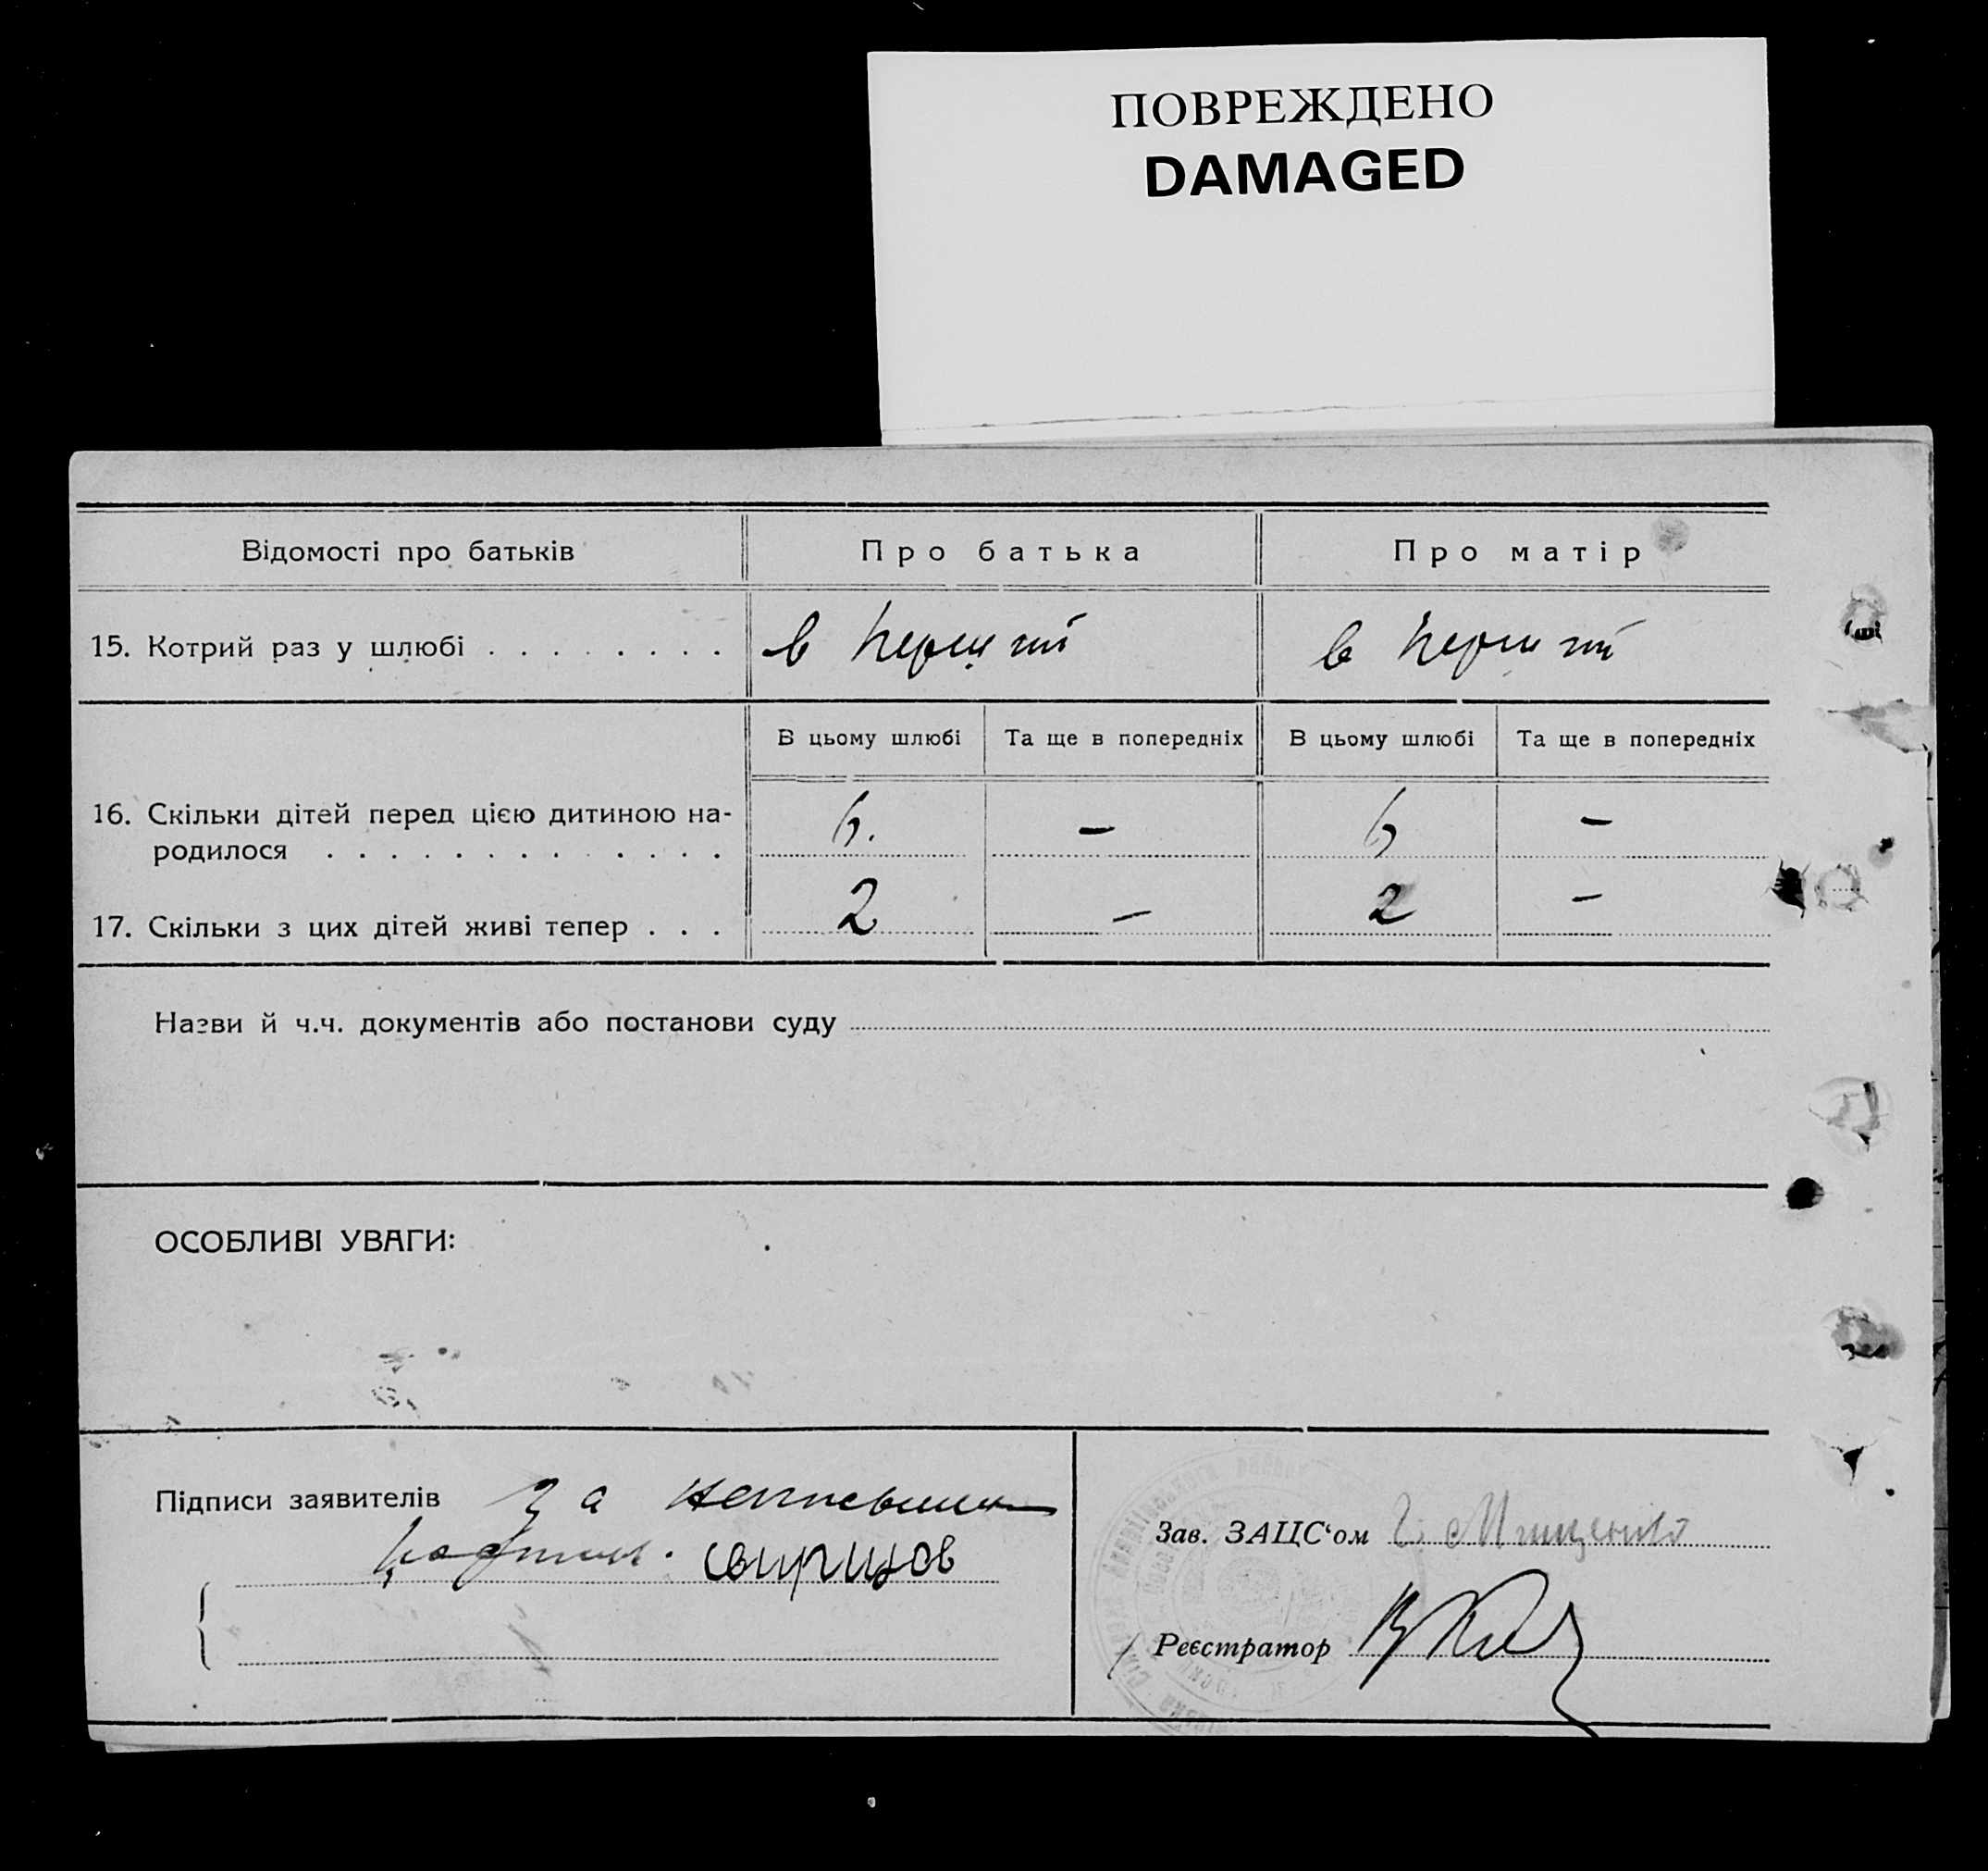 ПОВРЕЖДЕНО
DAMAGED
Відомості про батьків
Про батька
Про матір
15. Котрий раз у шлюбі . . . . . . . .
в перший
в перший
В цьому шлюбі
Та ще в попередніх
В цьому шлюбі
Та ще в попередніх
16. Скільки дітей перед цією дитиною на-
родилося . . . . . . . . . . . . .
6.
–
6
–
17. Скільки з цих дітей живі тепер . . .
2
–
2
–
Назви й ч.ч. документів або постанови суду
ОСОБЛИВІ УВАГИ:
Підписи заявителів за
Свирцов
Зав. ЗАЦС‘ом Г. Мищенко
Реєстратор